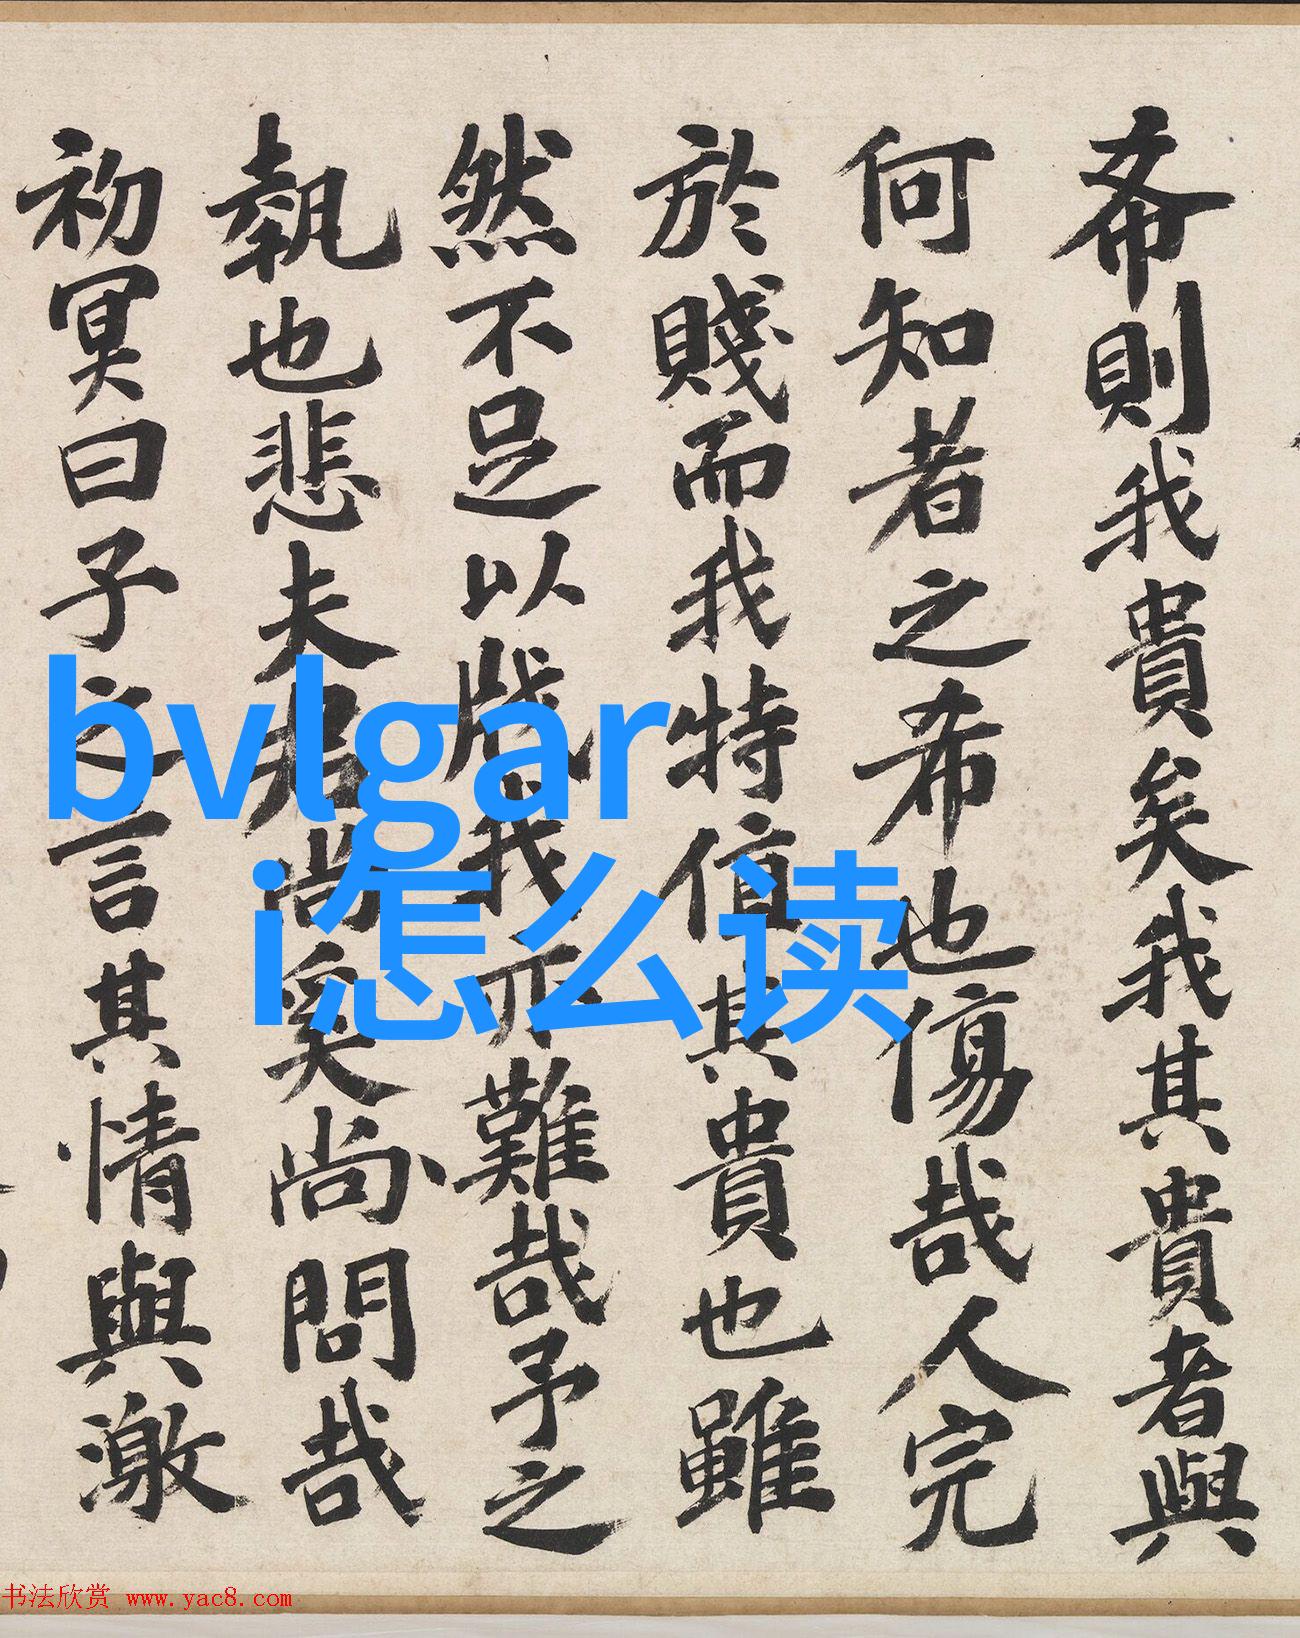 希則我貴矣我其貴者與
何知者之希也傷哉人完
於賤而我特值其貴也雖
然不足以戕我亦難哉予之
執也悲夫君尚奚尚問哉
初冥曰子之言其情與激
bvlgar
i怎么读
书法欣赏 www.yac8.com